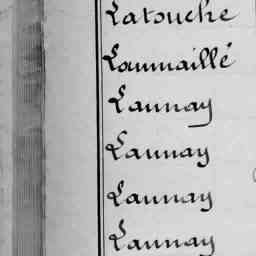 Latouche
Loumaillé
Launay
Launay
Launay
Launay